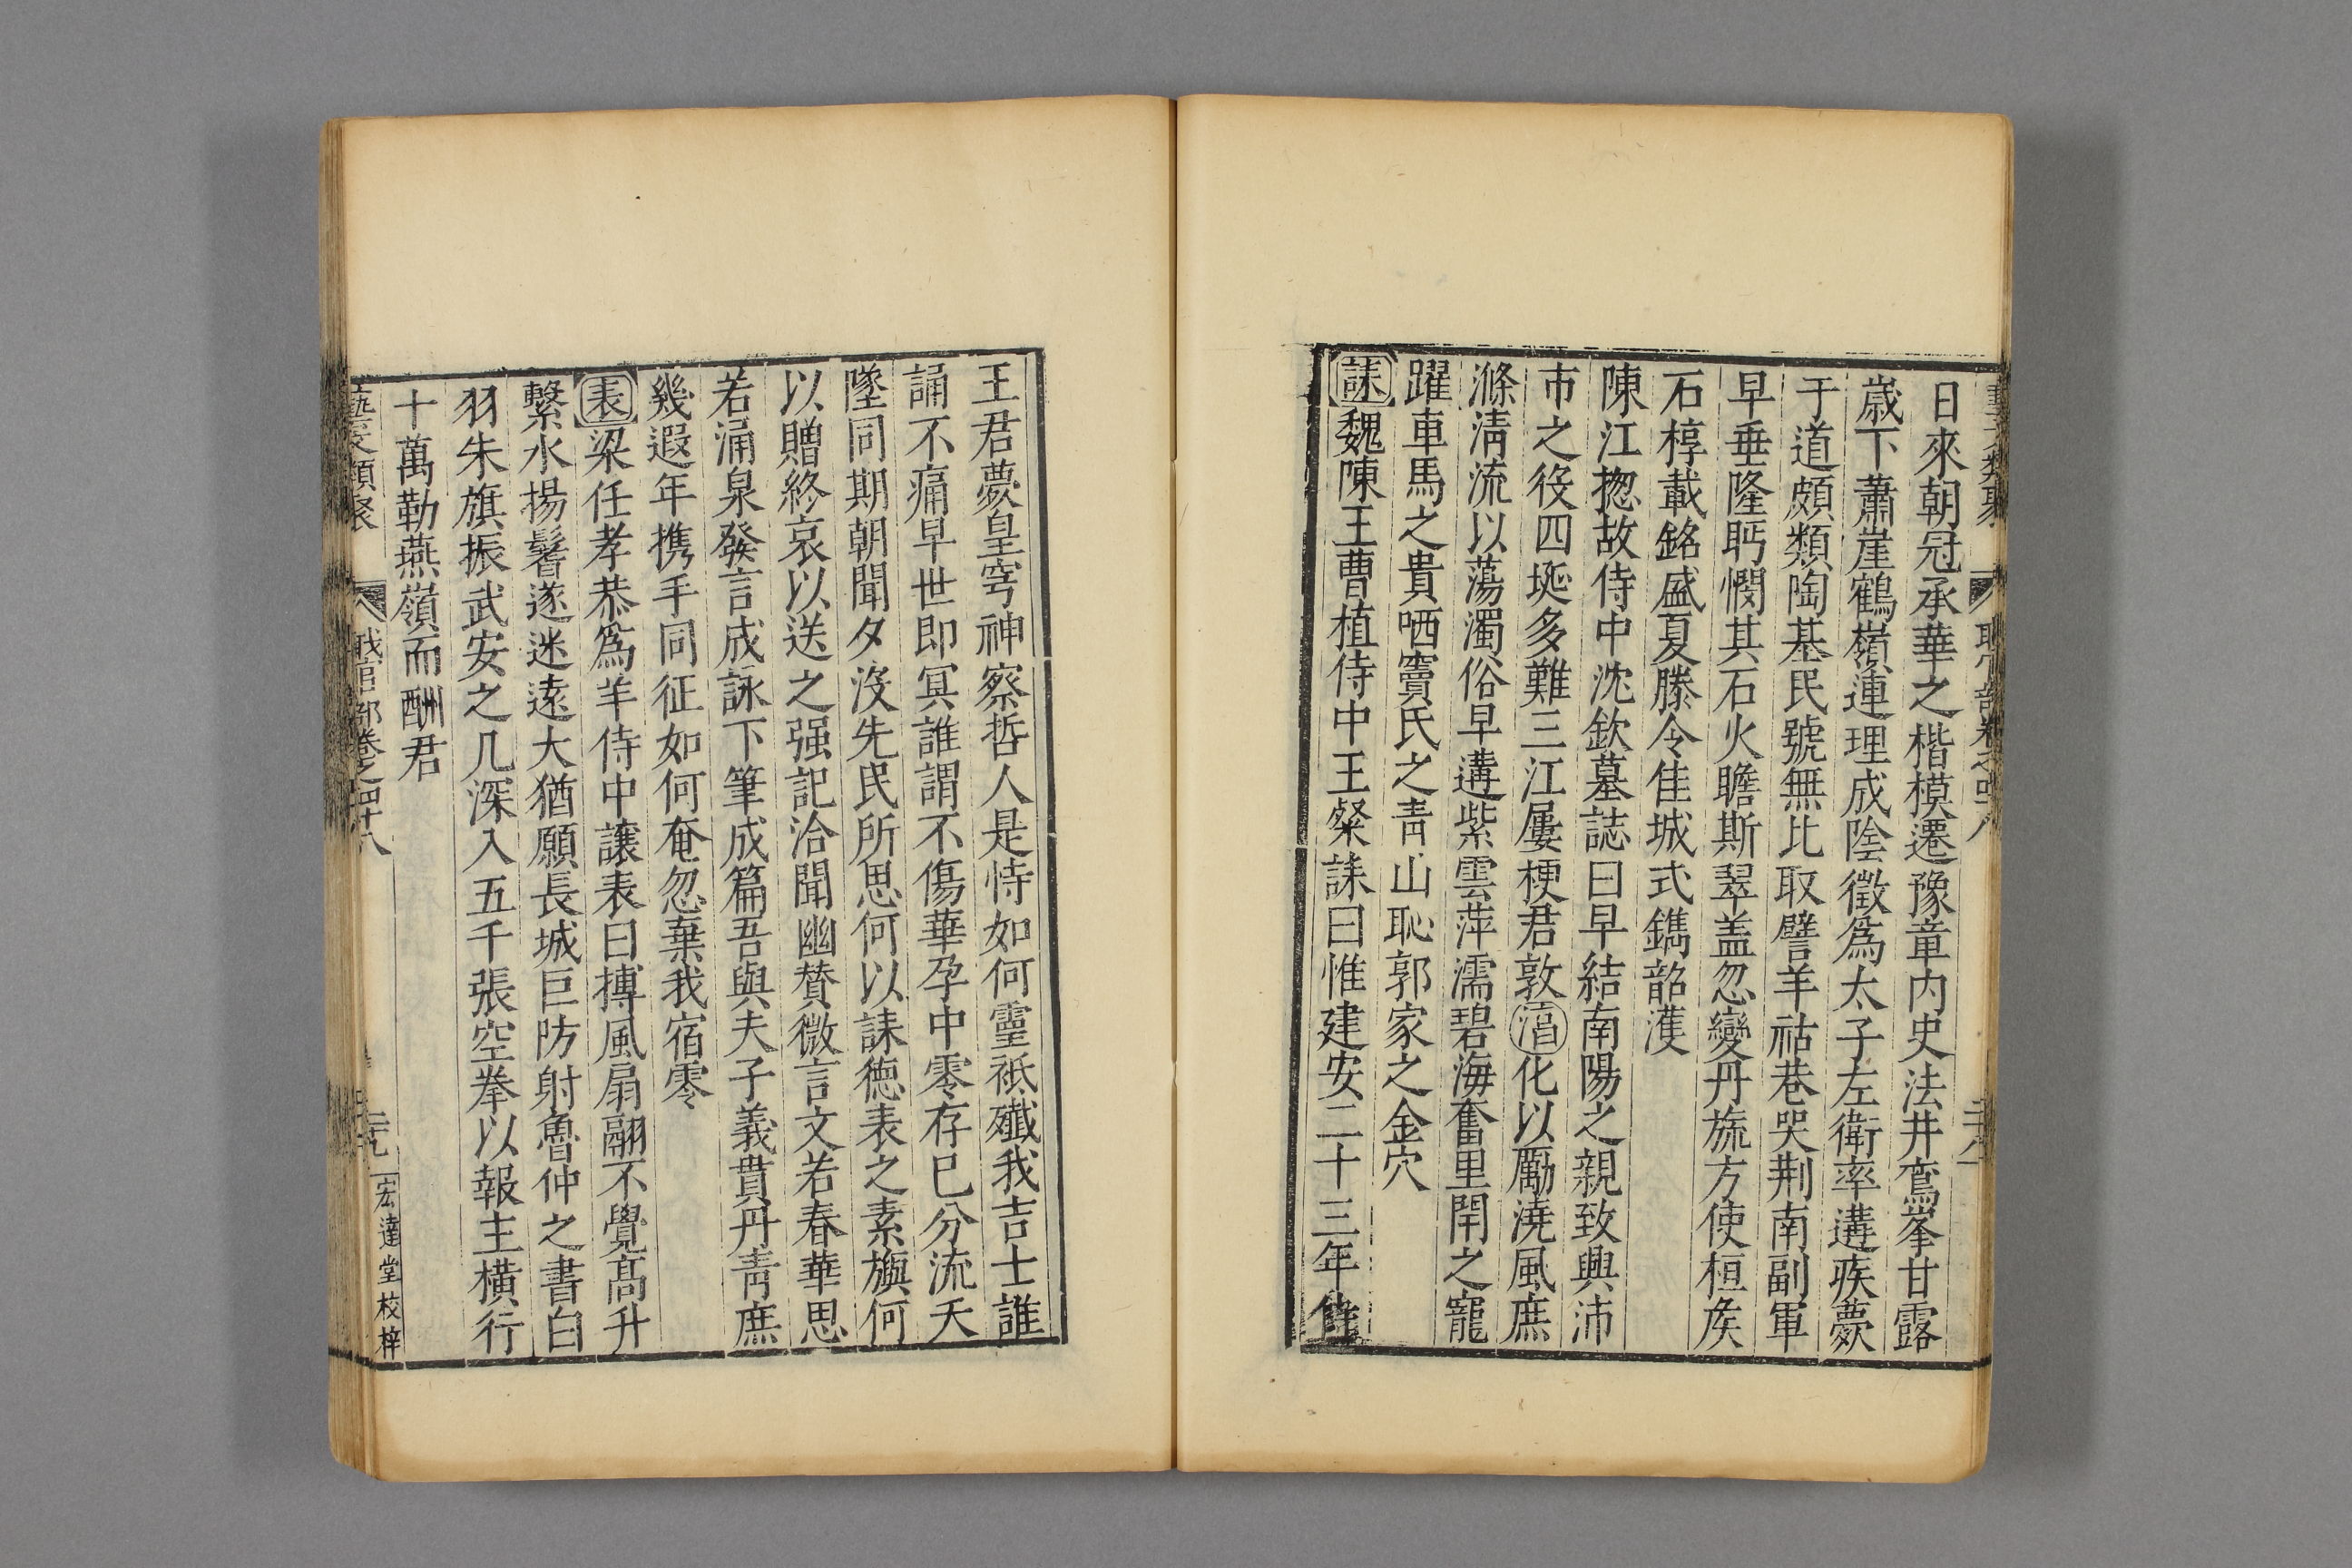 日來朝冠承華之楷模遷豫章內史法井鸞峯甘露
歲下蕭崖鶴嶺連理成陰徵爲太子左衛率遘疾薨
于道頗類陶基民號無比取譬羊祜巷哭荆南副軍
早垂隆眄憫其石火瞻斯翠盖忽變丹旐方使桓矦
石椁載銘盛夏滕令佳城式鐫韶濩
陳江揔故侍中沈欽墓誌曰早結南陽之親致興沛
市之役四埏多難三江屢梗君敦淯化以厲澆風庶
滌淸流以蕩濁俗早遘紫雲萍濡碧海奮里閈之寵
躍車馬之貴哂竇氏之靑山恥郭家之金穴
誄魏陳王曹植侍中王粲誄曰惟建安二十三年侍
王君薨皇穹神察哲人是恃如何靈祇殲我吉士誰
誦不痛早世即冥誰謂不傷華孕中零存巳分流夭
墜同期朝聞夕没先民所思何以誄德表之素旟何
以贈終哀以送之强記洽聞幽賛微言文若春華思
若涌泉發言成詠下筆成篇吾與夫子義貫丹靑庶
幾遐年携手同征如何奄忽棄我宿零
表梁任孝恭爲羊侍中讓表曰摶風扇翮不覺髙升
繫水揚鬐遂迷遠大猶願長城巨防射魯仲之書白
羽朱旗振武安之几深入五千張空拳以報主橫行
十萬勒燕嶺而酬君
職官部卷之四十八
二十九
宏達堂校梓